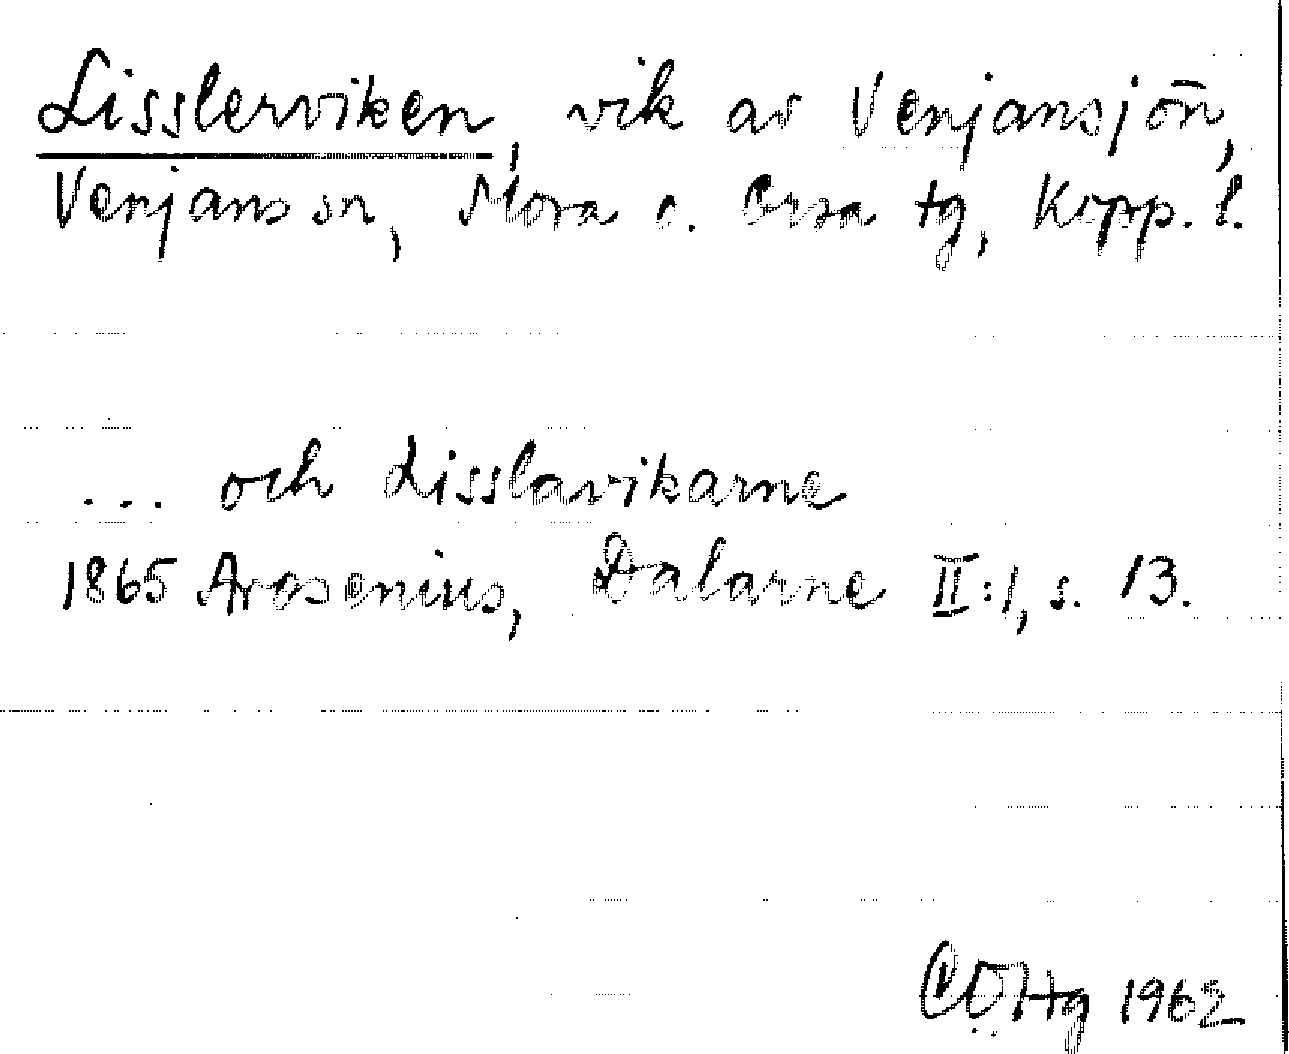 Lisslerviken, vik av Venjansjön,
Venjans sn, Mora o. Orsa tg, Kopp. l.
... och Lisslavikarne
1865 Arosenius, Dalarne II:1, s. 13.
1962